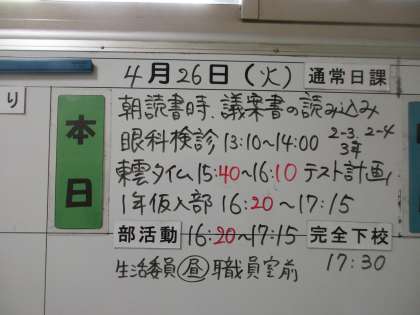 4月26日(火) 通常日課
り
本日
朝読書時、議案書の読み込み
眼科検診 13:10~14:00 2-3, 2-4
3年
東雲タイム 15:40~16:10 テスト計画
1年仮入部 16:20~17:15
部活動 16:20~17:15 完全下校
生活委員 昼 職員室前 17:30